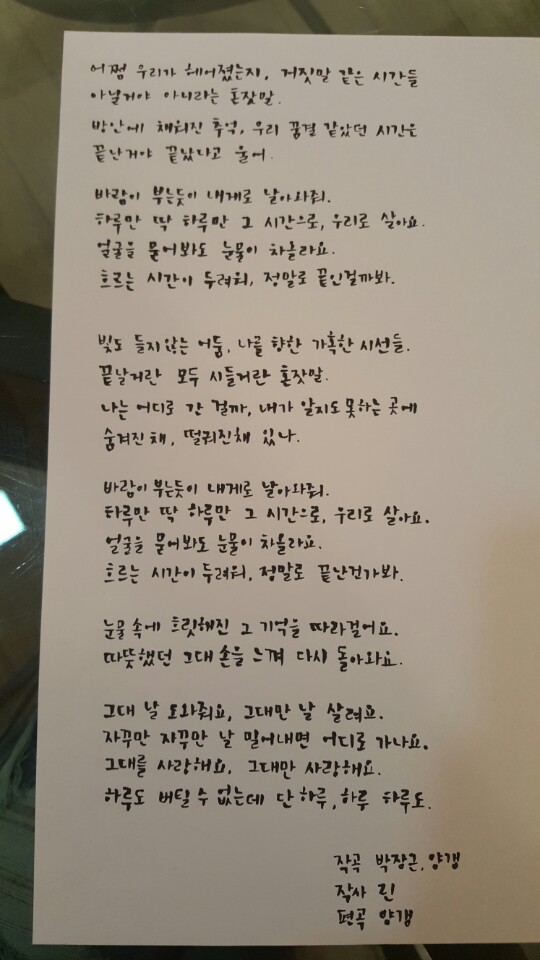 어쩜 우리가 헤어졌는지, 거짓말 같은 시간들
아닐거야 아니라는 혼잣말.
방안에 채워진 추억, 우리 꿈결 같았던 시간은
끝난거야 끝났다고 울어.
바람이 부는듯이 내게로 날아와줘.
하루만 딱 하루만 그 시간으로, 우리로 살아요.
얼굴을 묻어봐도 눈물이 차올라요.
흐르는 시간이 두려워, 정말로 끝인걸까봐.
빛도 들지않는 어둠, 나를 향한 가혹한 시선들.
끝날거란 모두 시들거란 혼잣말.
나는 어디로 간 걸까, 내가 알지도 못하는 곳에
숨겨진채, 떨궈진채 있나.
바람이 부는듯이 내게로 날아와줘.
하루만 딱 하루만 그 시간으로, 우리로 살아요.
얼굴을 묻어봐도 눈물이 차올라요.
흐르는 시간이 두려워, 정말로 끝난건가봐.
눈물 속에 흐릿해진 그 기억을 따라걸어요.
따뜻했던 그대 손을 느껴 다시 돌아와요.
그대 날 도와줘요, 그대만 날 살려요.
자꾸만 자꾸만 날 밀어내면 어디로 가나요.
그대를 사랑해요, 그대만 사랑해요.
하루도 버틸 수 없는데 단 하루, 하루 하루도.
작곡 박장근, 양갱
작사 린
편곡 양갱